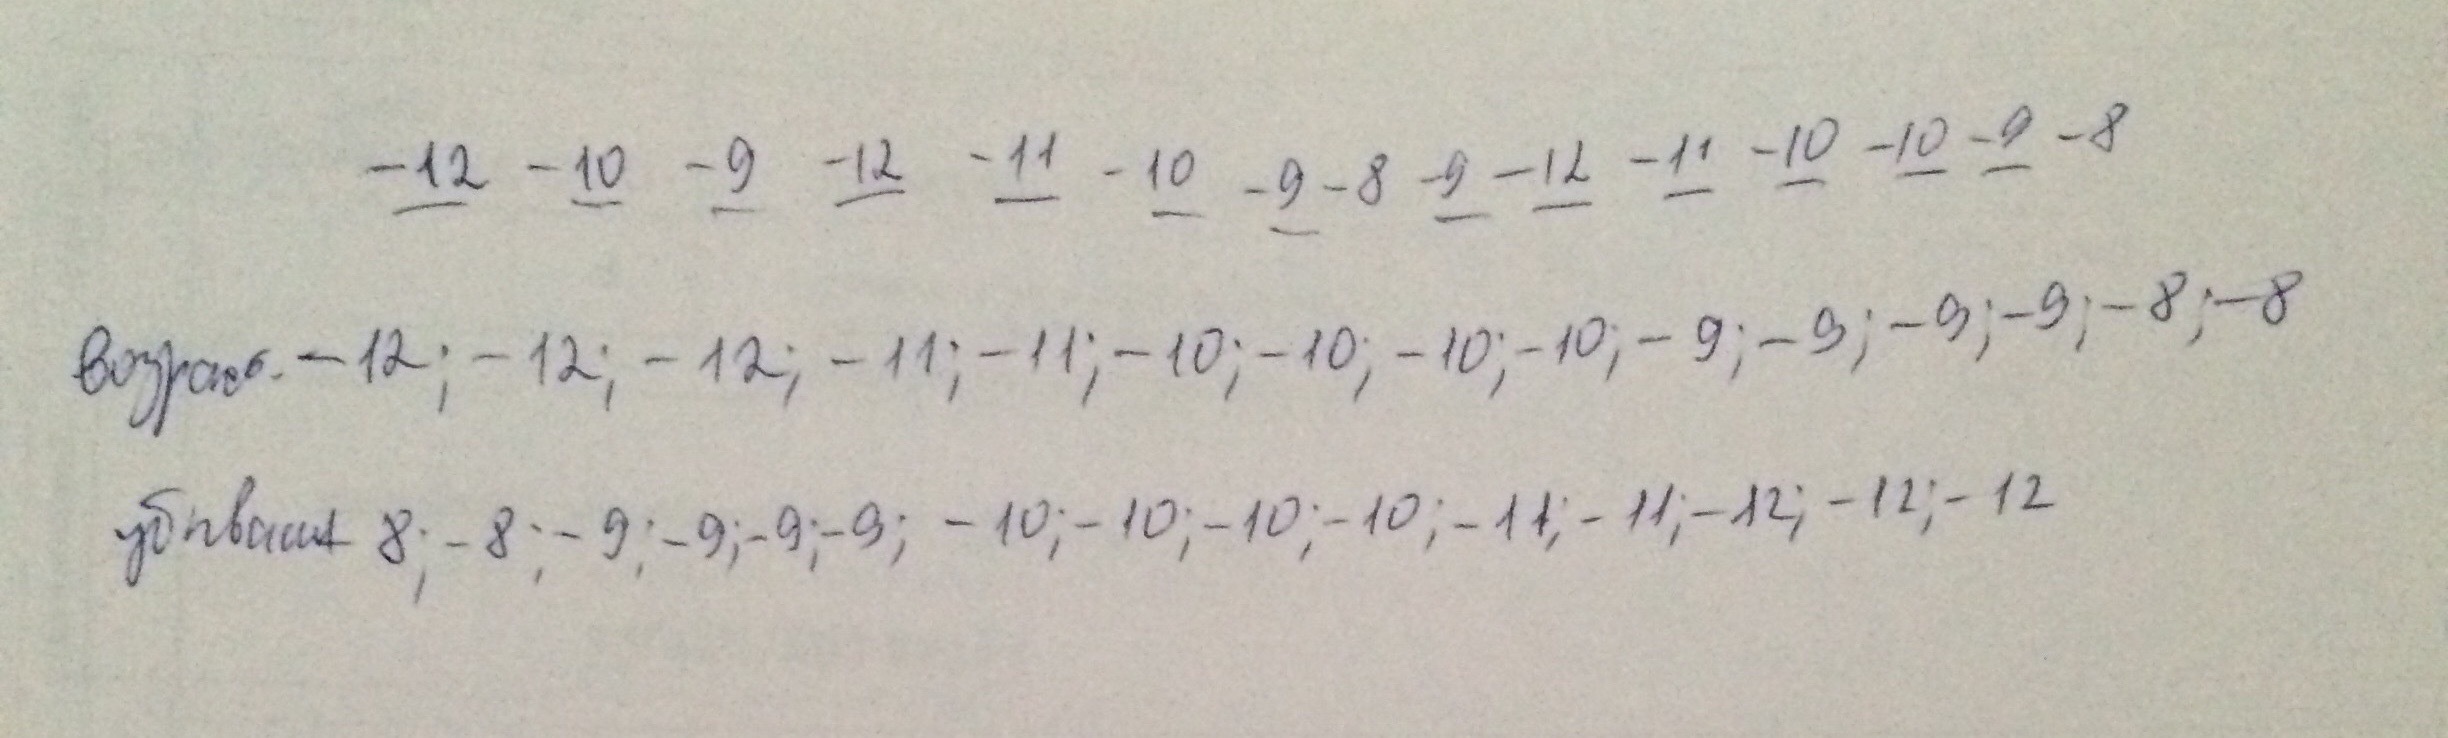 -12 -10 -9 -12 -11 -10 -9 -8 -9 -12 -11 -10 -10 -9 -8
возраст. -12; -12; -12; -11; -11; -10; -10; -10; -10; -9; -9; -9; -9; -8; -8
убывания 8; -8; -9; -9; -9; -9; -10; -10; -10; -10; -11; -11; -12; -12; -12